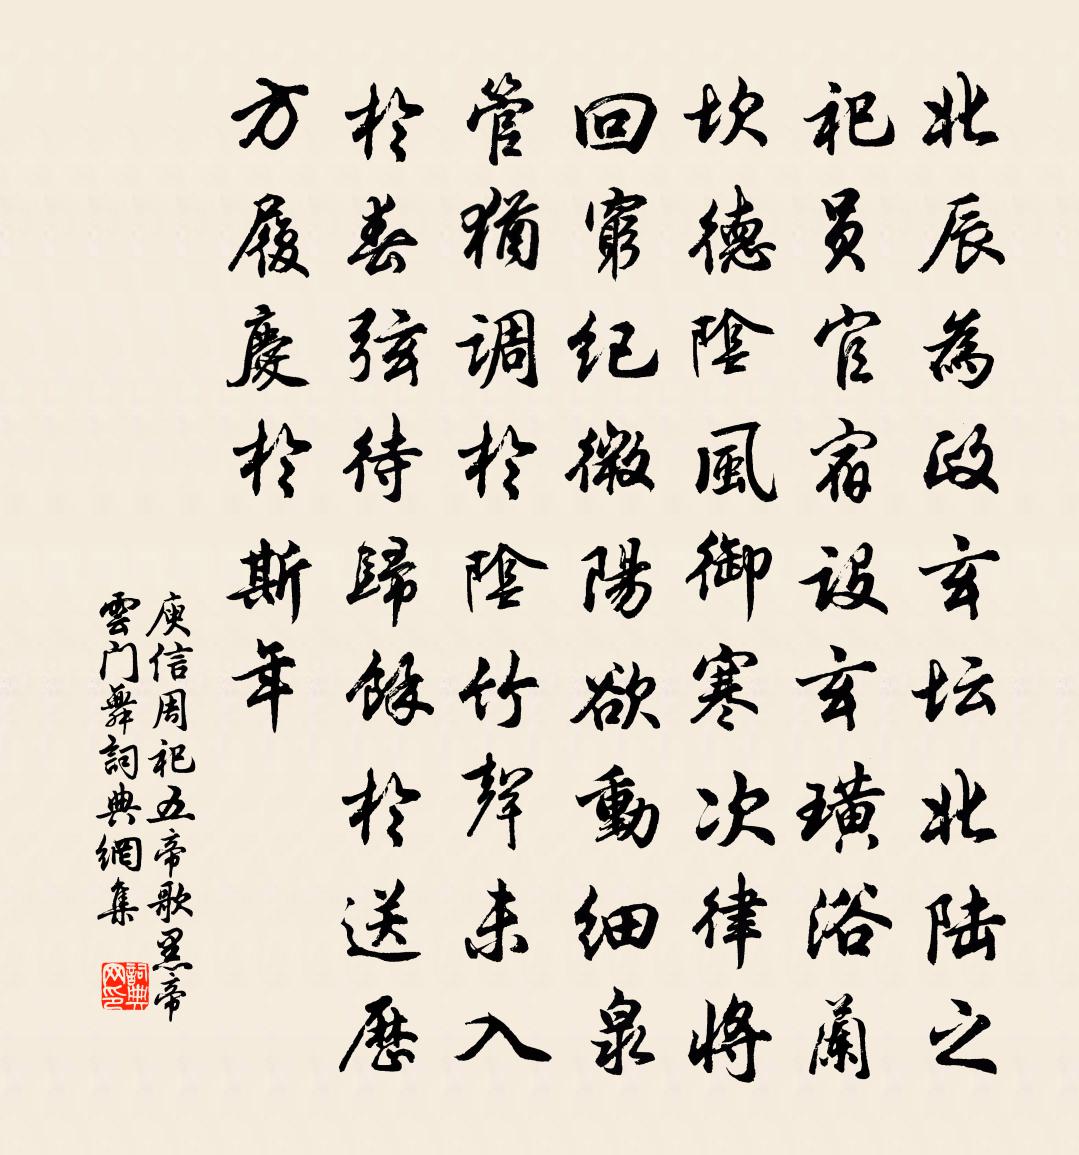 北辰為政玄坛北陆之
祀員官宿設玄璜浴蘭
坎德陰風御寒次律將
回窮紀微陽欲動細泉
管猶調於陰竹聲未入
於春弦待歸餘於送歷
方履慶於斯年
庾信周祀五帝歌黑帝
雲门舞詞典網集
詞典网印